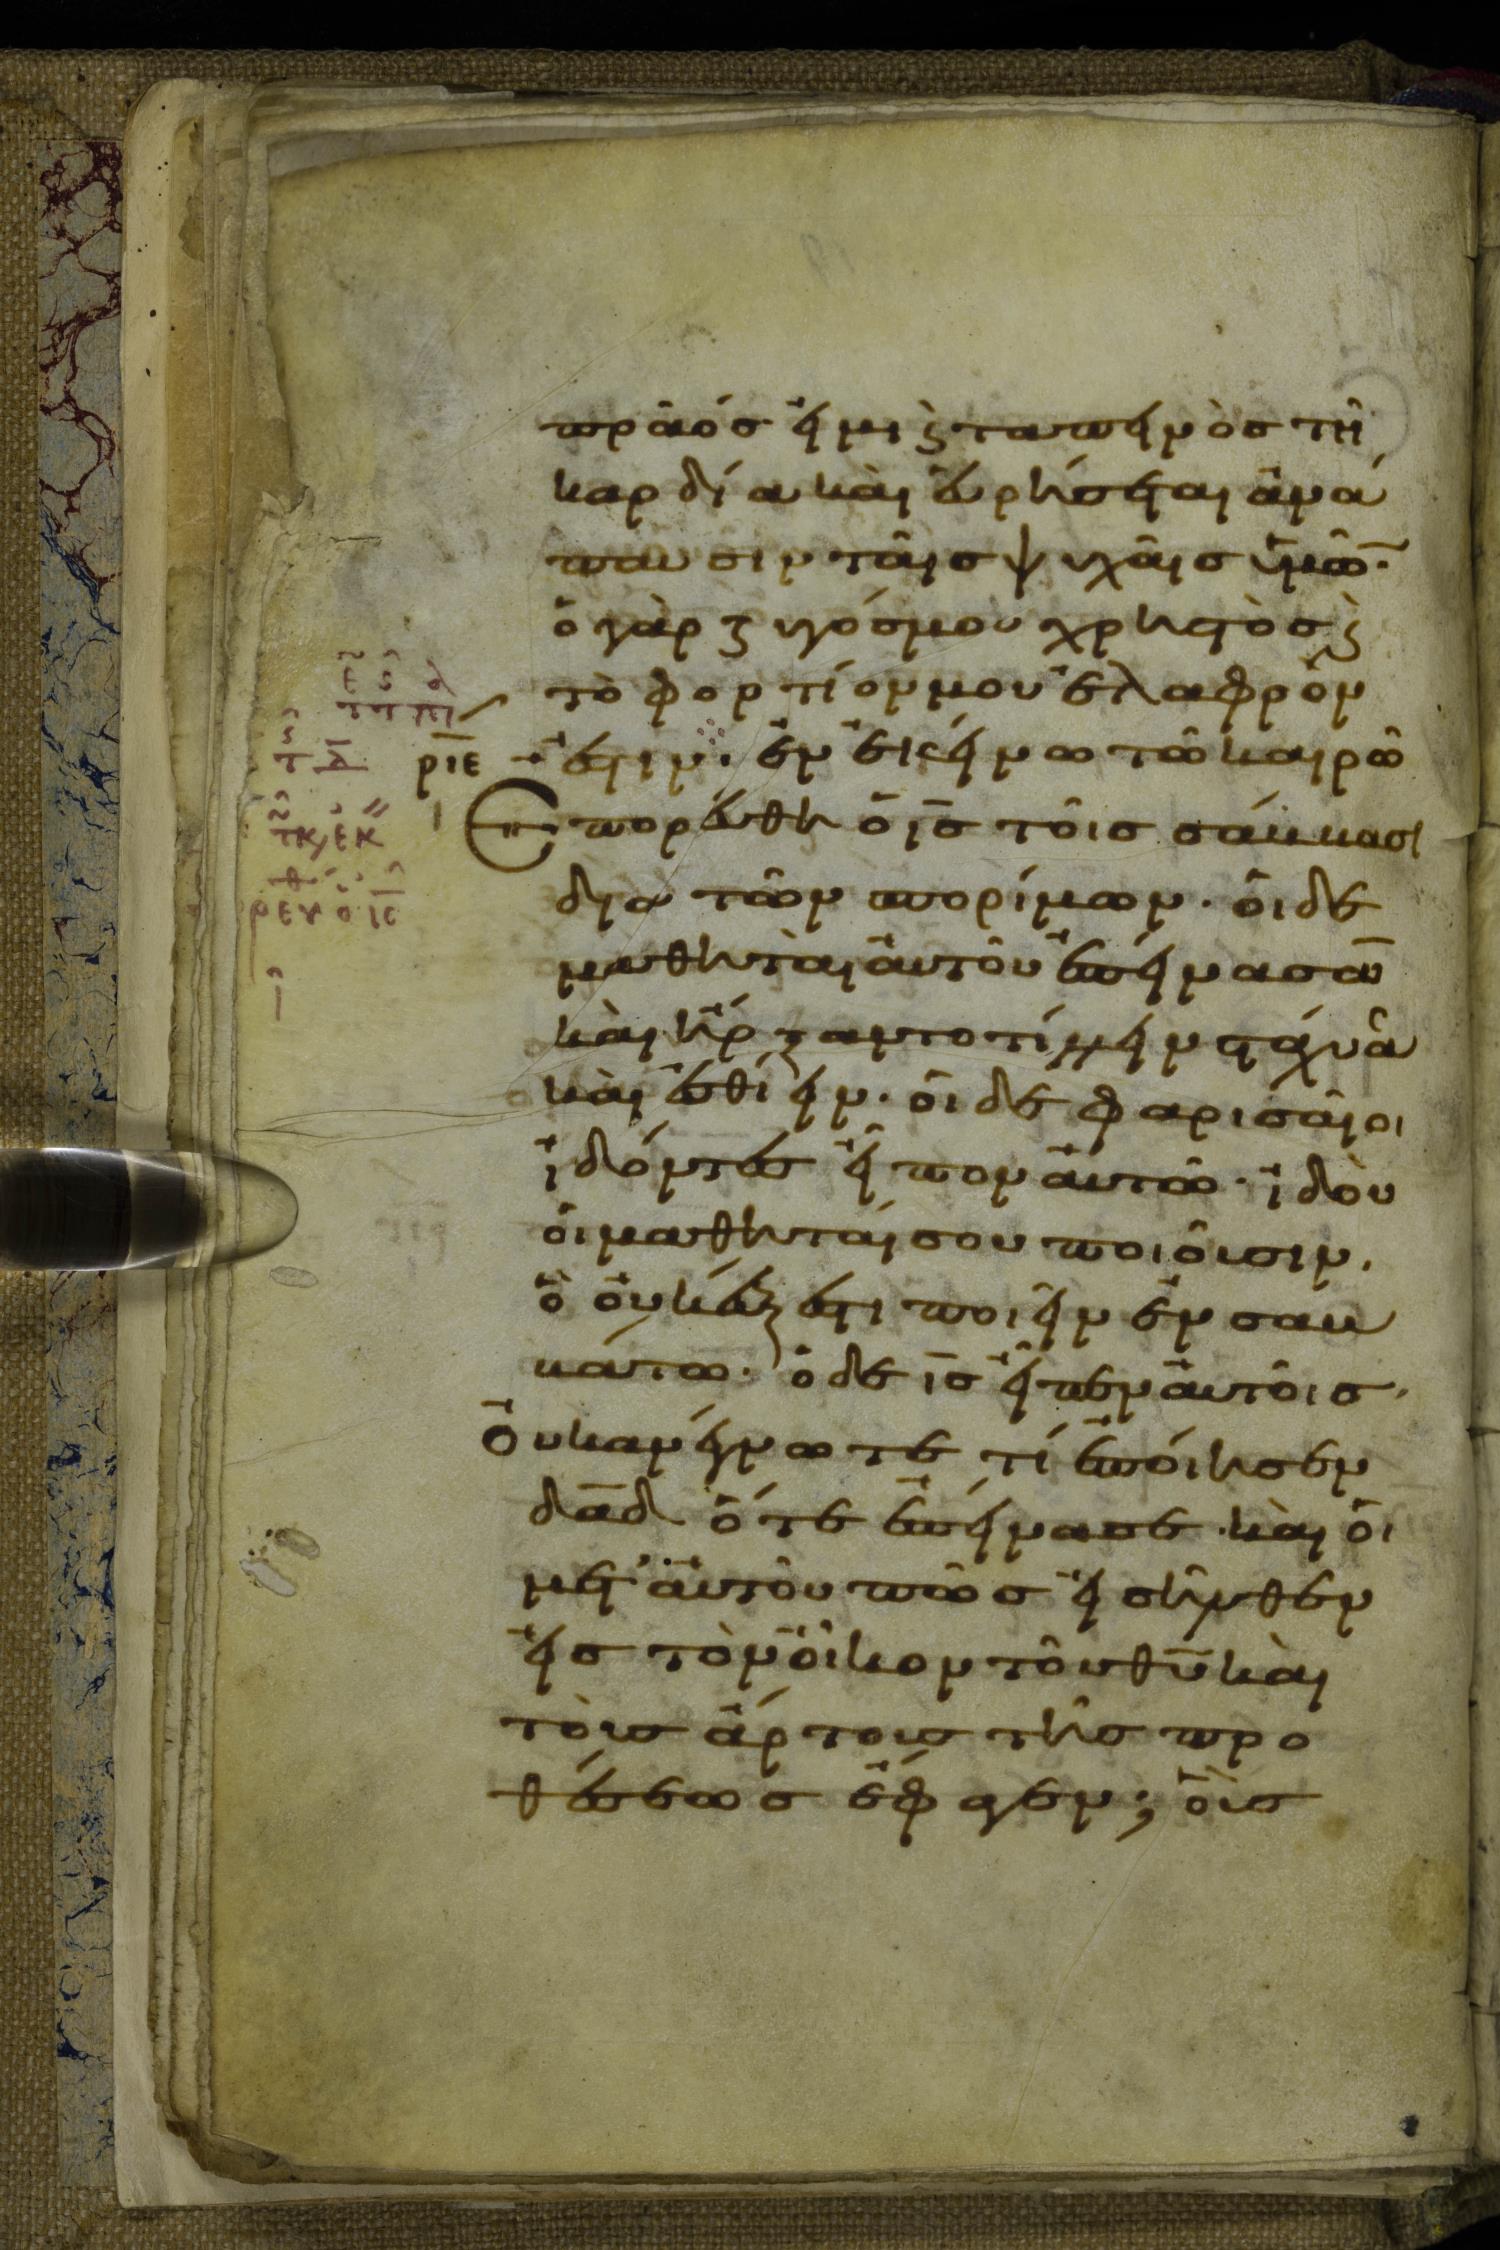 πρᾶός εἰμι ϗ ταπεινὸς τῆ
καρδία καὶ ἑυρήσεται ἀνά
παυσιν ταῖς ψυχαῖς ὑμῶ̅·
ὁ γὰρ ζυγόσμου χρηστὸς ϗ
τὸ φορτίον μου ἐλαφρόν
ρ̅ι̅ε̅ ἐστιν· ἐν ἐκείνω τῶ καιρῶ
Ἐπορέυθη ὁ ι̅ς̅ τοῖς σάββασι
δια τῶν σπορίμων· ὁι δὲ
μαθηταὶ ἀυτοῦ ἐπείνασα̅
καὶ ἤρξαντο τίλλειν στάχυα
καὶ ἐσθίειν· ὁι δὲ φαρισαῖοι
ἰδόντες εἶπον ἀυτῶ· ἰδοὺ
ὁι μαθηταί σου ποιοῦσιν,
ὃ ὀυκ έξεστι ποιεῖν ἐν σαβ
βάτω· ὁ δὲ ι̅ς̅ εἶπεν ἀυτοῖς,
Ὀυκ ανέγνωτε τί ἐποίησεν
δ̅α̅δ̅ ὅτε ἐπείνασε· καὶ ὁι
μετ' ἀυτοῦ πῶς εἰσῆλθεν
εἰς τὸν ὀῖκον τοῦ θ̅υ̅ καὶ
τοὺς ἄρτους τῆς προ
θέσεως ἔφαγεν; ὁὺς